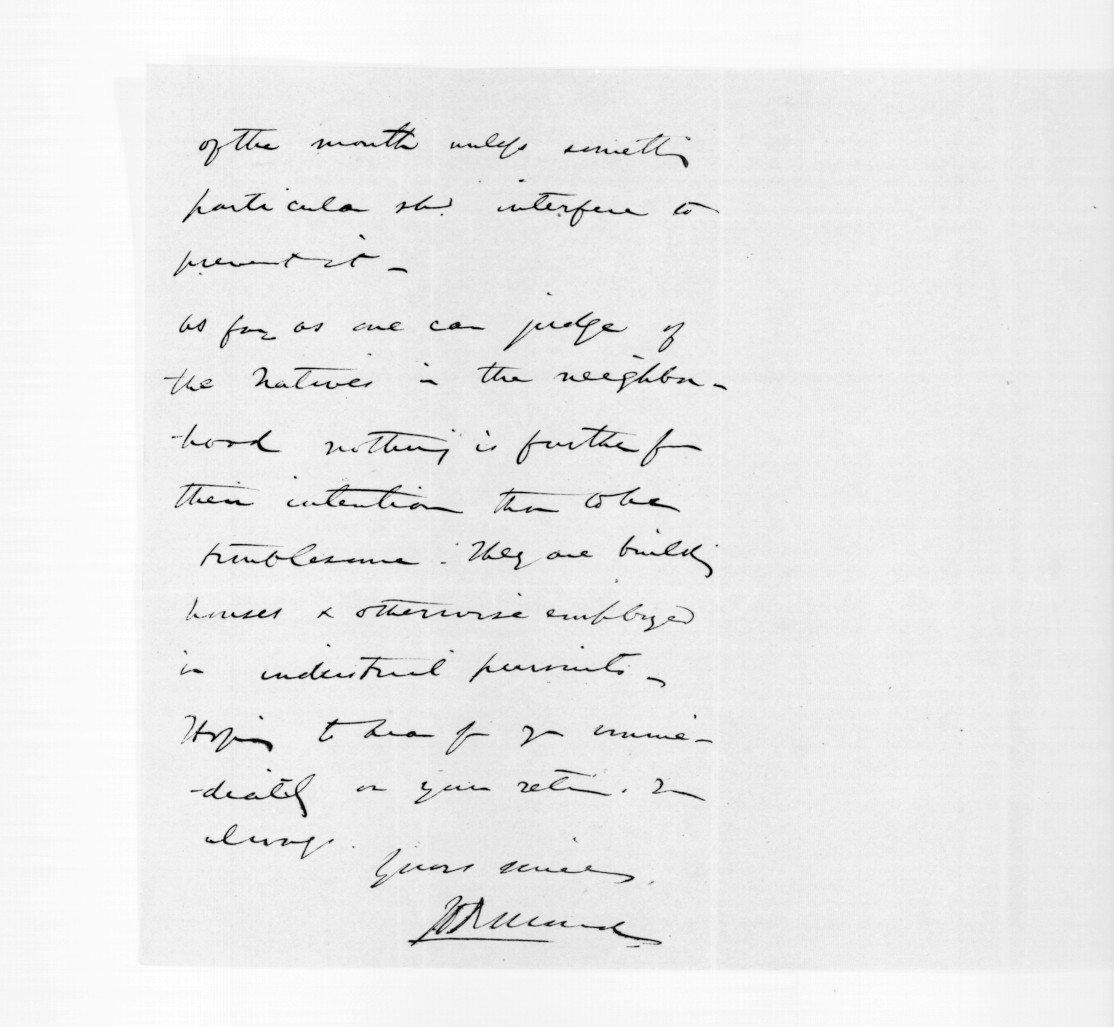 of the month unless something
particular shd. interfere to
prevent it -
as far as one can judge of
the Natives in the neighbour -
- hood nothing is further from
their intention than to be
troublesome. They are building
houses & otherwise employed
in industrial pursuits -
Hoping to hear from you imme -
- diately on your return. I am
always.
Yours sincerely.